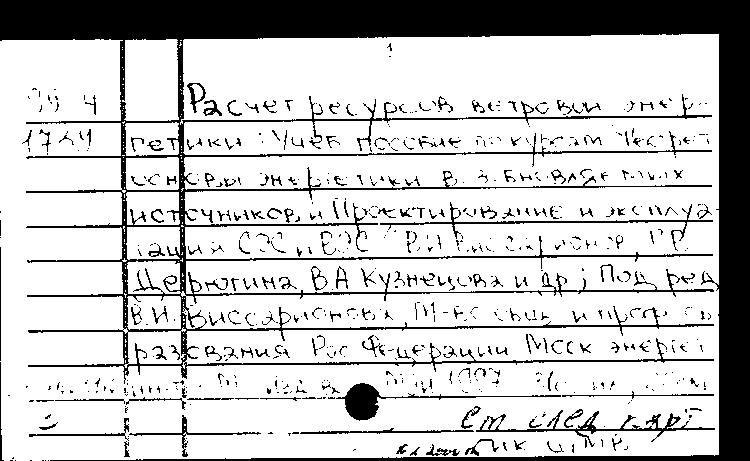 1
99 4 Расчет ресурсов ветровой энер-
1764 гетики : Учеб пособие по курсам "Теорет
основы энергетики возобновляемых
источников и Проектирование и эксплуа-
тация СЭС и ВЭС" В.И Виссарионов,
Дерюгина, В.А Кузнецова и др ; Под ред
В.И. Виссарионова, М-во общ и проф об-
разования Рос Федерации Моск энергет
ин-т М Изд-во МЭИ, 1997
См след карт